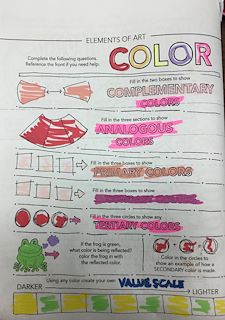 ELEMENTS OF ART
Complete the following questions.
Reference the front if you need help.
COLOR
Fill in the two boxes to show
COMPLEMENTARY
COLORS
Fill in the three sections to show
ANALOGOUS
COLORS
Fill in the three boxes to show
PRIMARY COLORS
Fill in the three boxes to show
Fill in the three circles to show any
TERTIARY COLORS
If the frog is green,
what color is being reflected?
color the frog in with
the reflected color.
Color in the circles to
show an example of how a
SECONDARY color is made.
Using any color create your own VALUE SCALE
DARKER
LIGHTER